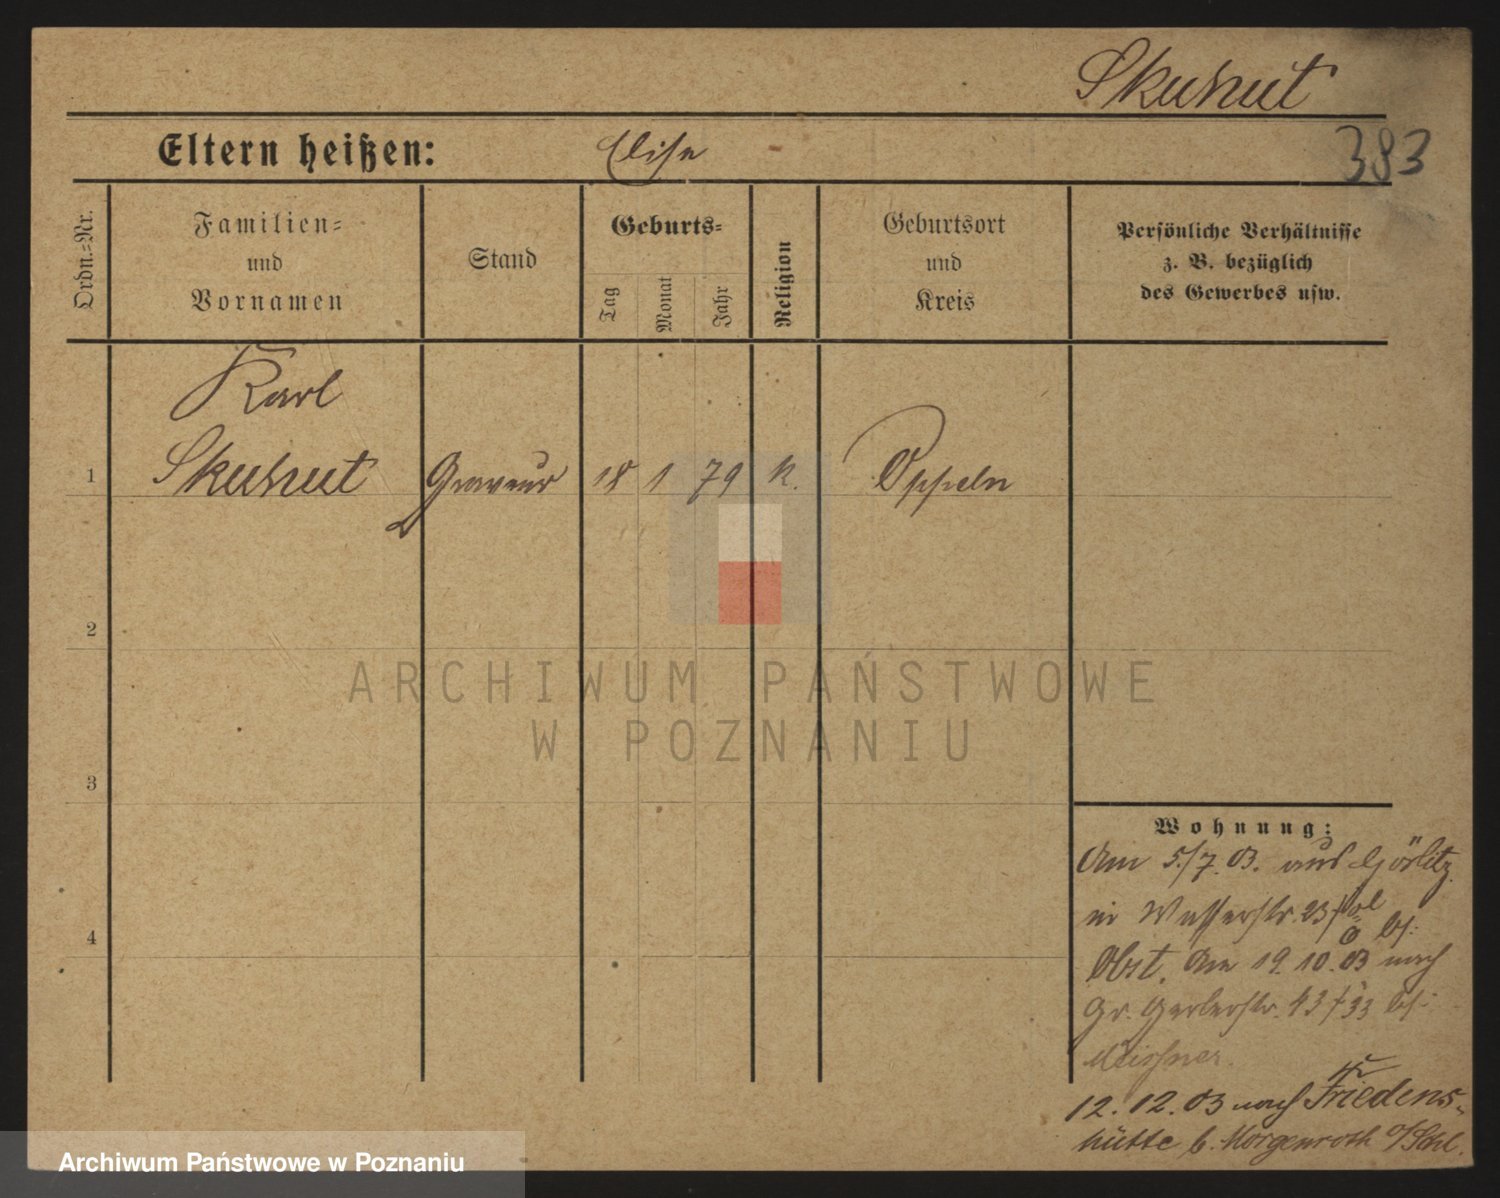 Skuhut
Eltern heißen: Elise 383
Ordn.-Nr.
Familien-
und
Vornamen
Stand
Geburts-
Tag
Monat
Jahr
Religion
Geburtsort
und
Kreis
Persönliche Verhältnisse
z. B. bezüglich
des Gewerbes usw.
Karl
1 Skuhut Graveur 18 1 79 k. Oppeln
2
3
4
ARCHIWUM PAŃSTWOWE
W POZNANIU
Wohnung:
Am 5./7. 03. aus Görlitz
in Wasserstr. 23 bei
Obst. Am 19. 10. 03 nach
Gr. Gerberstr. 43 bei
Meissner.
12. 12. 03 nach Friedens-
hütte b. Morgenroth O/Schl.
Archiwum Państwowe w Poznaniu